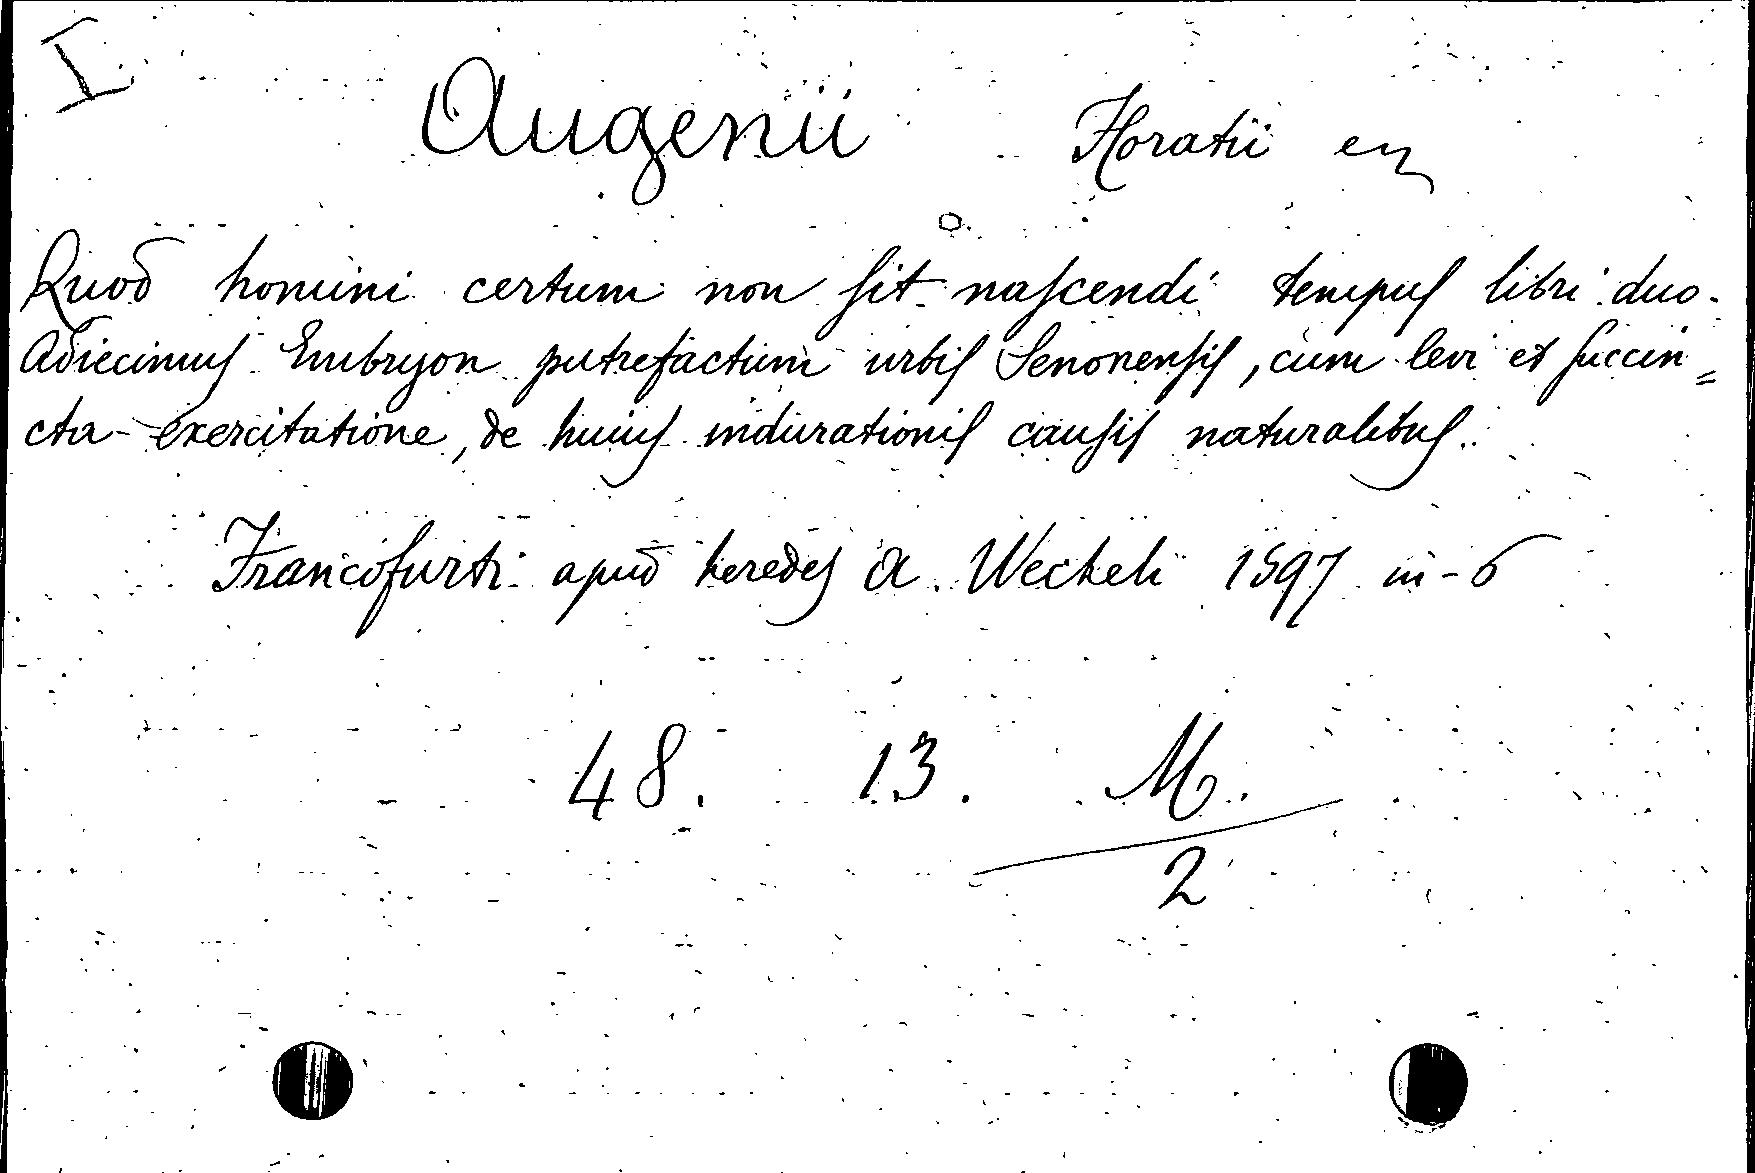 I
Augenii Horatii en
Quod homini certum non sit nascendi tempus libri duo.
Adiecimus Embryon putrefactum urbis Senonensis, cum levi et succin=
cta exercitatione, de huius indurationis causis naturalibus.
Francofurti apud heredes A. Wecheli 1597 in-6
48. 13. M.
2